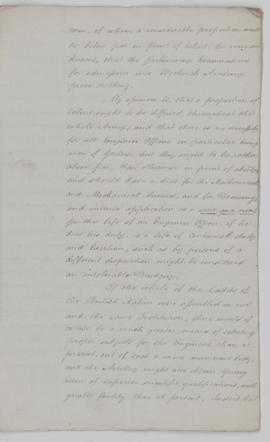 men, of whom a considerable proportion must
be below par in point of talent. For every one
knows, that the preliminary Examinations
for admission into Woolwich Academy
prove nothing.
My opinion is, that a proportion of
talent ought to be diffused throughout the
whole Army, and that there is no necessity
for all Engineer Officers in particular being
men of Genius, but they ought to be rather
above par, than otherwise in point of ability
and should have a turn for the Mathematical
and Mechanical Sciences, and for Drawing;
and intense application is a sine qua non;
for the life of an Engineer Officer, if he
does his duty, is a life of continual study
and Exertion, such as by persons of a
different disposition might be considered
an intolerable Drudgery.
If the whole of the Cadets of
the United Nation were assembled in one
and the same Institution, there would of
course be a much greater means of selecting
proper subjects for the Engineers than at
present, out of such a more numerous body,
and the Artillery might also obtain young
men of superior scientific qualifications, with
greater facility than at present. Indeed had